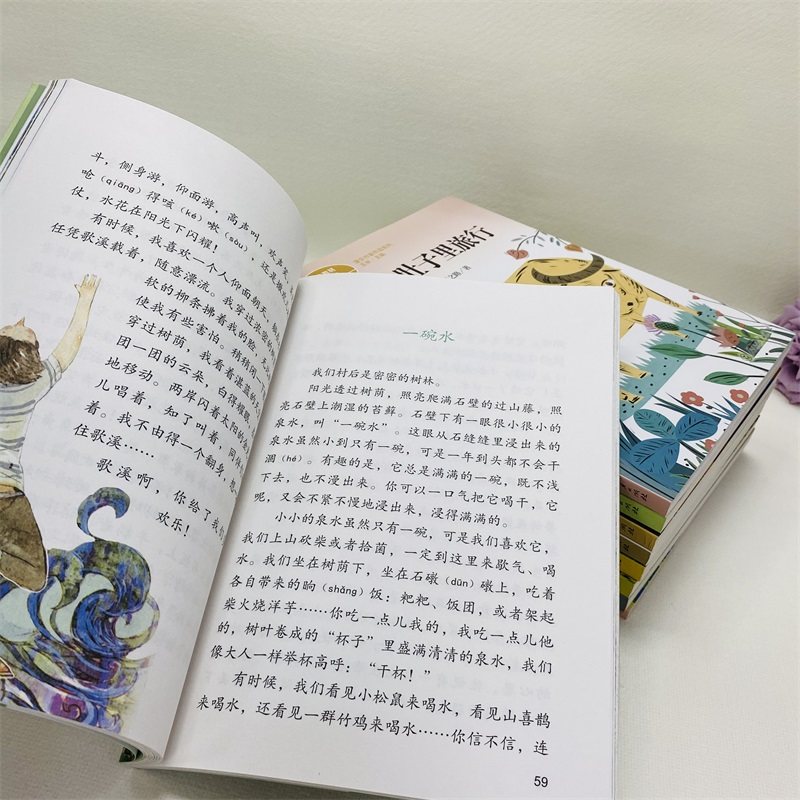 斗，侧身游，仰面游，高声叫，欢声笑，
呛（qiāng）得咳（ké）嗽（sòu），还是
仗，水花在阳光下闪耀！
有时候，我喜欢一个人仰面朝天，
任凭歌溪载着，随意漂流。我穿过浓密的
软的柳条拂着我的脸，
使我有些害怕。稍稍闭一
穿过树荫，我看着湛蓝的
团一团的云朵，白得耀眼
地移动。两岸闪着太阳的
儿唱着，知了叫着，同伴
着。我不由得一个翻身，想
住歌溪……
歌溪啊，你给了我们
欢乐！
一碗水
我们村后是密密的树林。
阳光透过树荫，照亮爬满石壁的过山藤，照
亮石壁上潮湿的苔藓。石壁下有一眼很小很小的
泉水，叫“一碗水”。这眼从石缝缝里浸出来的
泉水虽然小到只有一碗，可是一年到头都不会干
涸（hé）。有趣的是，它总是满满的一碗，既不浅
下去，也不浸出来。你可以一口气把它喝干，它
呢，又会不紧不慢地浸出来，浸得满满的。
小小的泉水虽然只有一碗，可是我们喜欢它，
我们上山砍柴或者拾菌，一定到这里来歇气、喝
水。我们坐在树荫下，坐在石礅（dūn）礅上，吃着
各自带来的晌（shǎng）饭：粑粑、饭团，或者架起
柴火烧洋芋……你吃一点儿我的，我吃一点儿他
的，树叶卷成的“杯子”里盛满清清的泉水，我们
像大人一样举杯高呼：“干杯！”
有时候，我们看见小松鼠来喝水，看见山喜鹊
来喝水，还看见一群竹鸡来喝水……你信不信，连
59
肚子里旅行